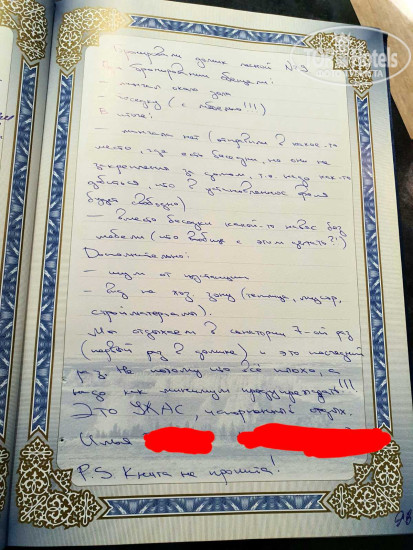 Бронировали домик лесной №3
При бронировании обещали:
– мангал около дома
– беседку (с мебелью!!!)
В итоге:
– мангала нет (отправили в какое-то
место, где есть беседки, но они не
закреплены за домом, т.е. надо как-то
что в установленное время
будет свободно)
– вместо беседки какой-то навес без
мебели (что вообще с этим делать?!)
Дополнительно:
– шум от
– вид на хоз. зону (теплица, мусор,
стройматериалы).
Мы отдыхаем в санатории 7-ой раз
(первый раз в домике) и это последний
раз. Не потому что всё плохо, а
надо как минимум предупреждать!!!
Это УЖАС, испорченный отдых.
P.S Книга не прошита!